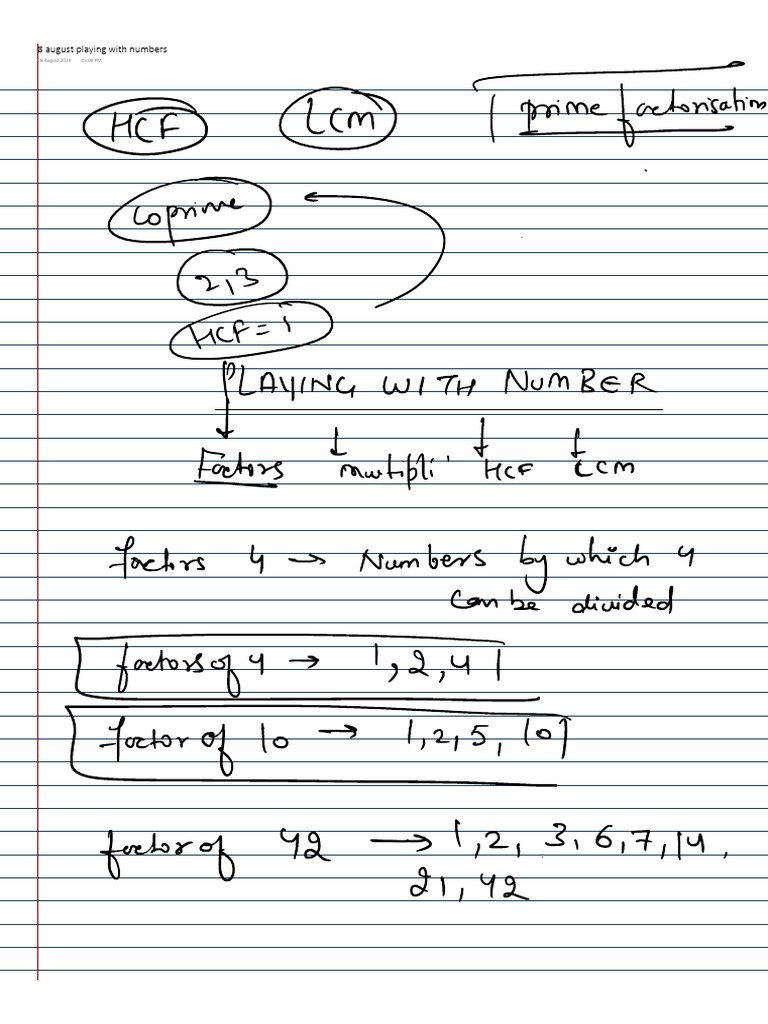 8 august playing with numbers
8 August 2024 05:06 PM
HCF LCM prime factorisation
Coprime
2,3
HCF = 1
PLAYING WITH NUMBER
Factors multipli HCF LCM
factors 4 → Numbers by which 4
can be divided
factors of 4 → 1, 2, 4
factor of 10 → 1, 2, 5, 10
factor of 42 → 1, 2, 3, 6, 7, 14,
21, 42